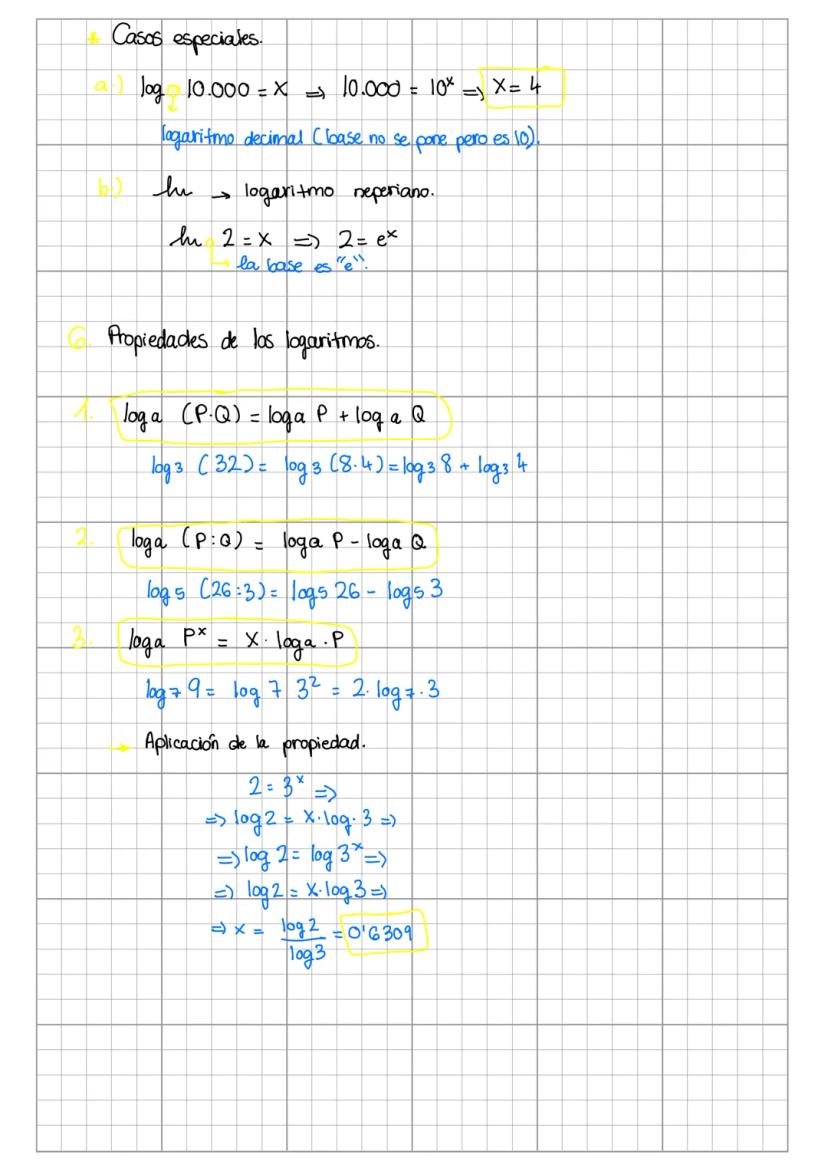 * Casos especiales.
a.) log 10.000 = x ⇒ 10.000 = 10ˣ ⇒ x = 4
logaritmo decimal (base no se pone pero es 10).
b.) ln → logaritmo neperiano.
ln 2 = x ⇒ 2 = eˣ
→ la base es "e".
6. Propiedades de los logaritmos.
1. loga (P·Q) = loga P + log a Q
log3 (32) = log3 (8·4) = log3 8 + log3 4
2. loga (P:Q) = loga P - loga Q
log5 (26:3) = log5 26 - log5 3
3. loga Pˣ = x · loga · P
log7 9 = log 7 3² = 2 · log7 · 3
→ Aplicación de la propiedad.
2 = 3ˣ ⇒
⇒ log 2 = x · log · 3 ⇒
⇒ log 2 = log 3ˣ ⇒
⇒ log 2 = x · log 3 ⇒
⇒ x = log 2 / log 3 = 0'6309